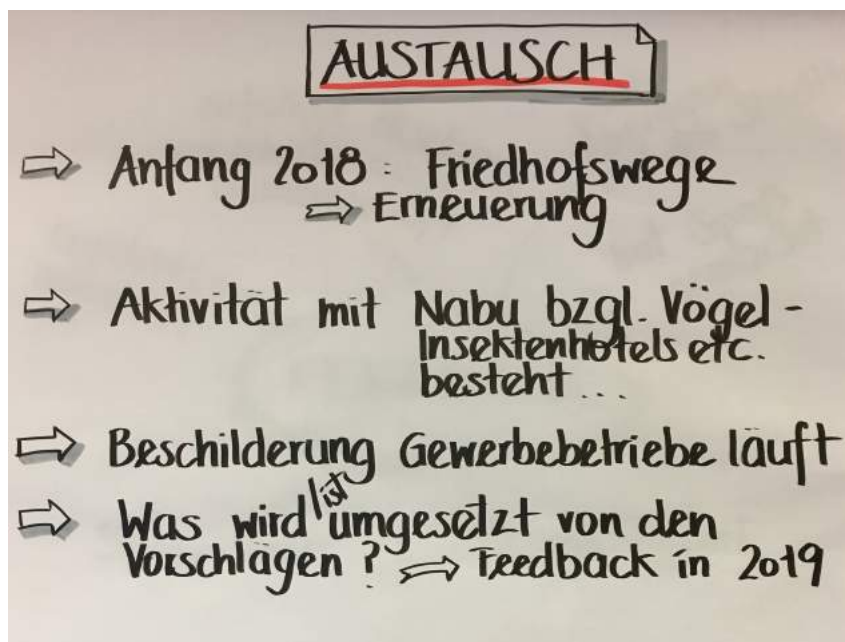 AUSTAUSCH
⇨ Anfang 2018: Friedhofswege
⇨ Erneuerung
⇨ Aktivität mit Nabu bzgl. Vögel-
Insektenhotels etc.
besteht...
⇨ Beschilderung Gewerbebetriebe läuft
⇨ Was wird /ist umgesetzt von den
Vorschlägen? ⇨ Feedback in 2019